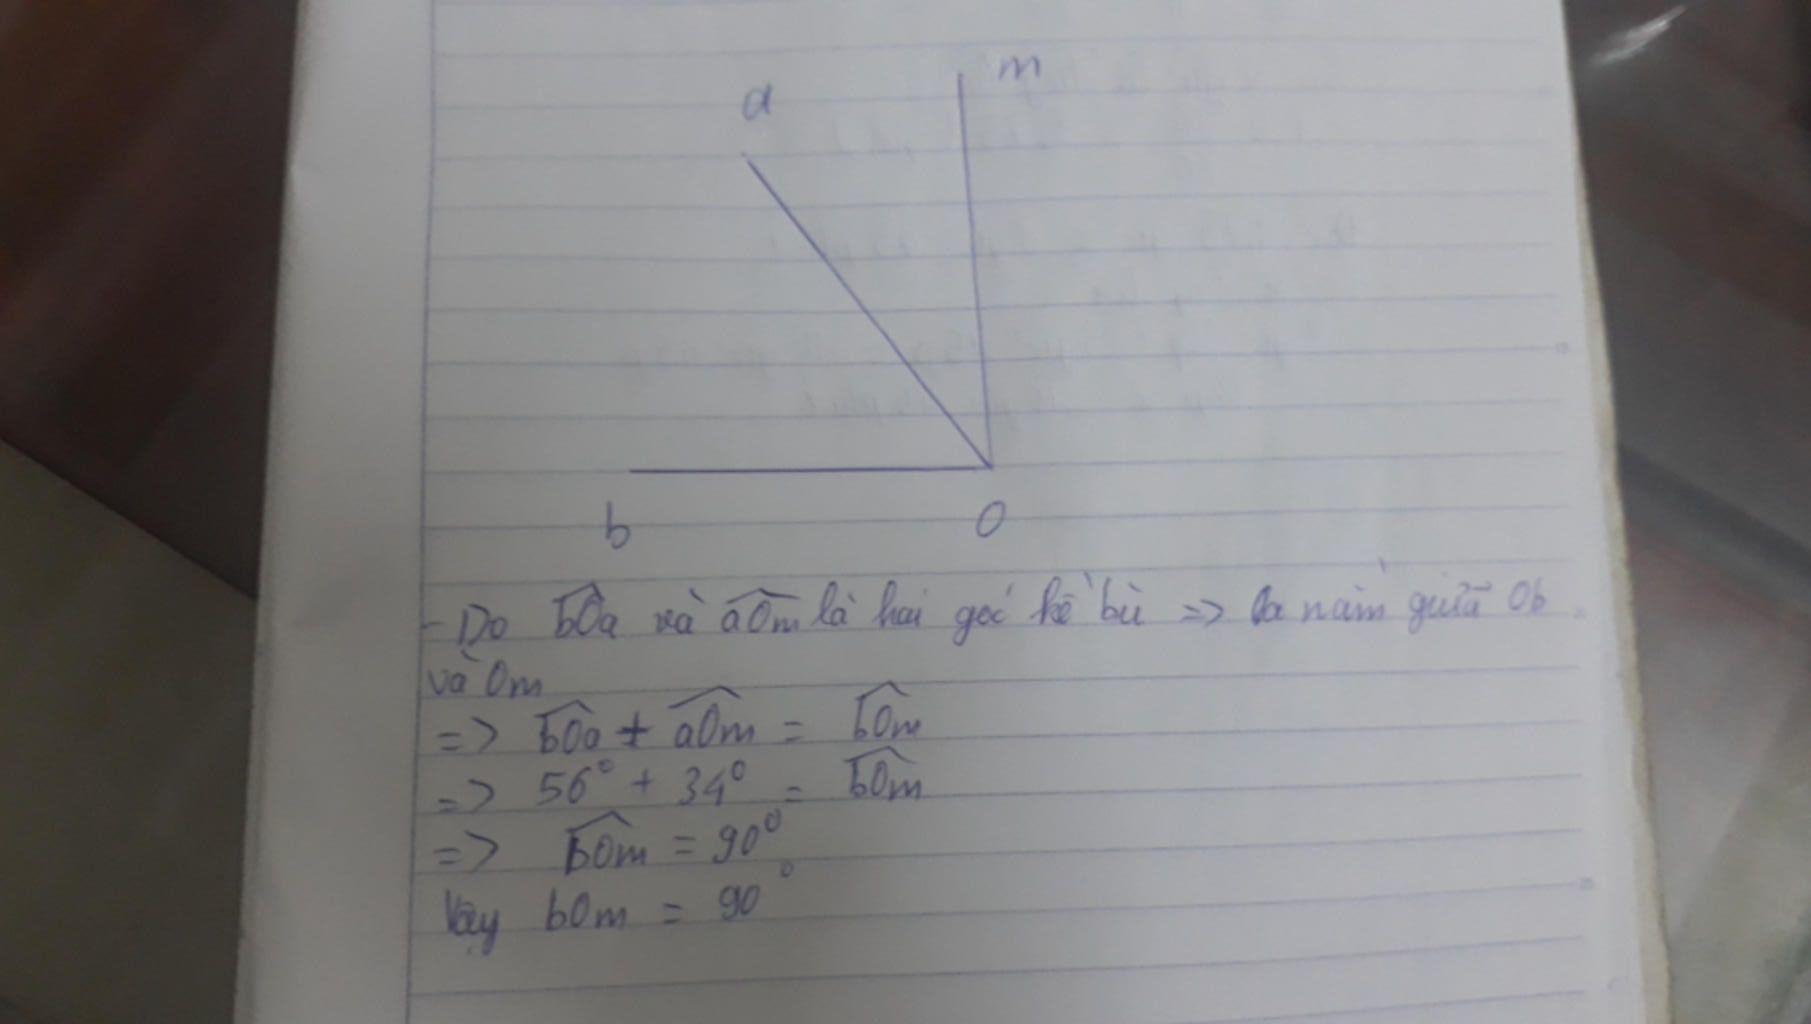 a
m
b
O
- Do bOa và aOm là hai góc kề bù => Oa nằm giữa Ob
và Om
=> bOa + aOm = bOm
=> 56° + 34° = bOm
=> bOm = 90°
Vậy bOm = 90°